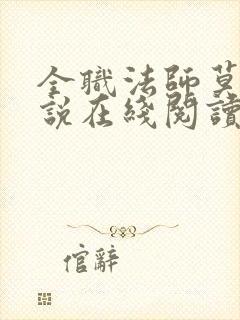 全職法師莫
説在綫閱讀
倌辭